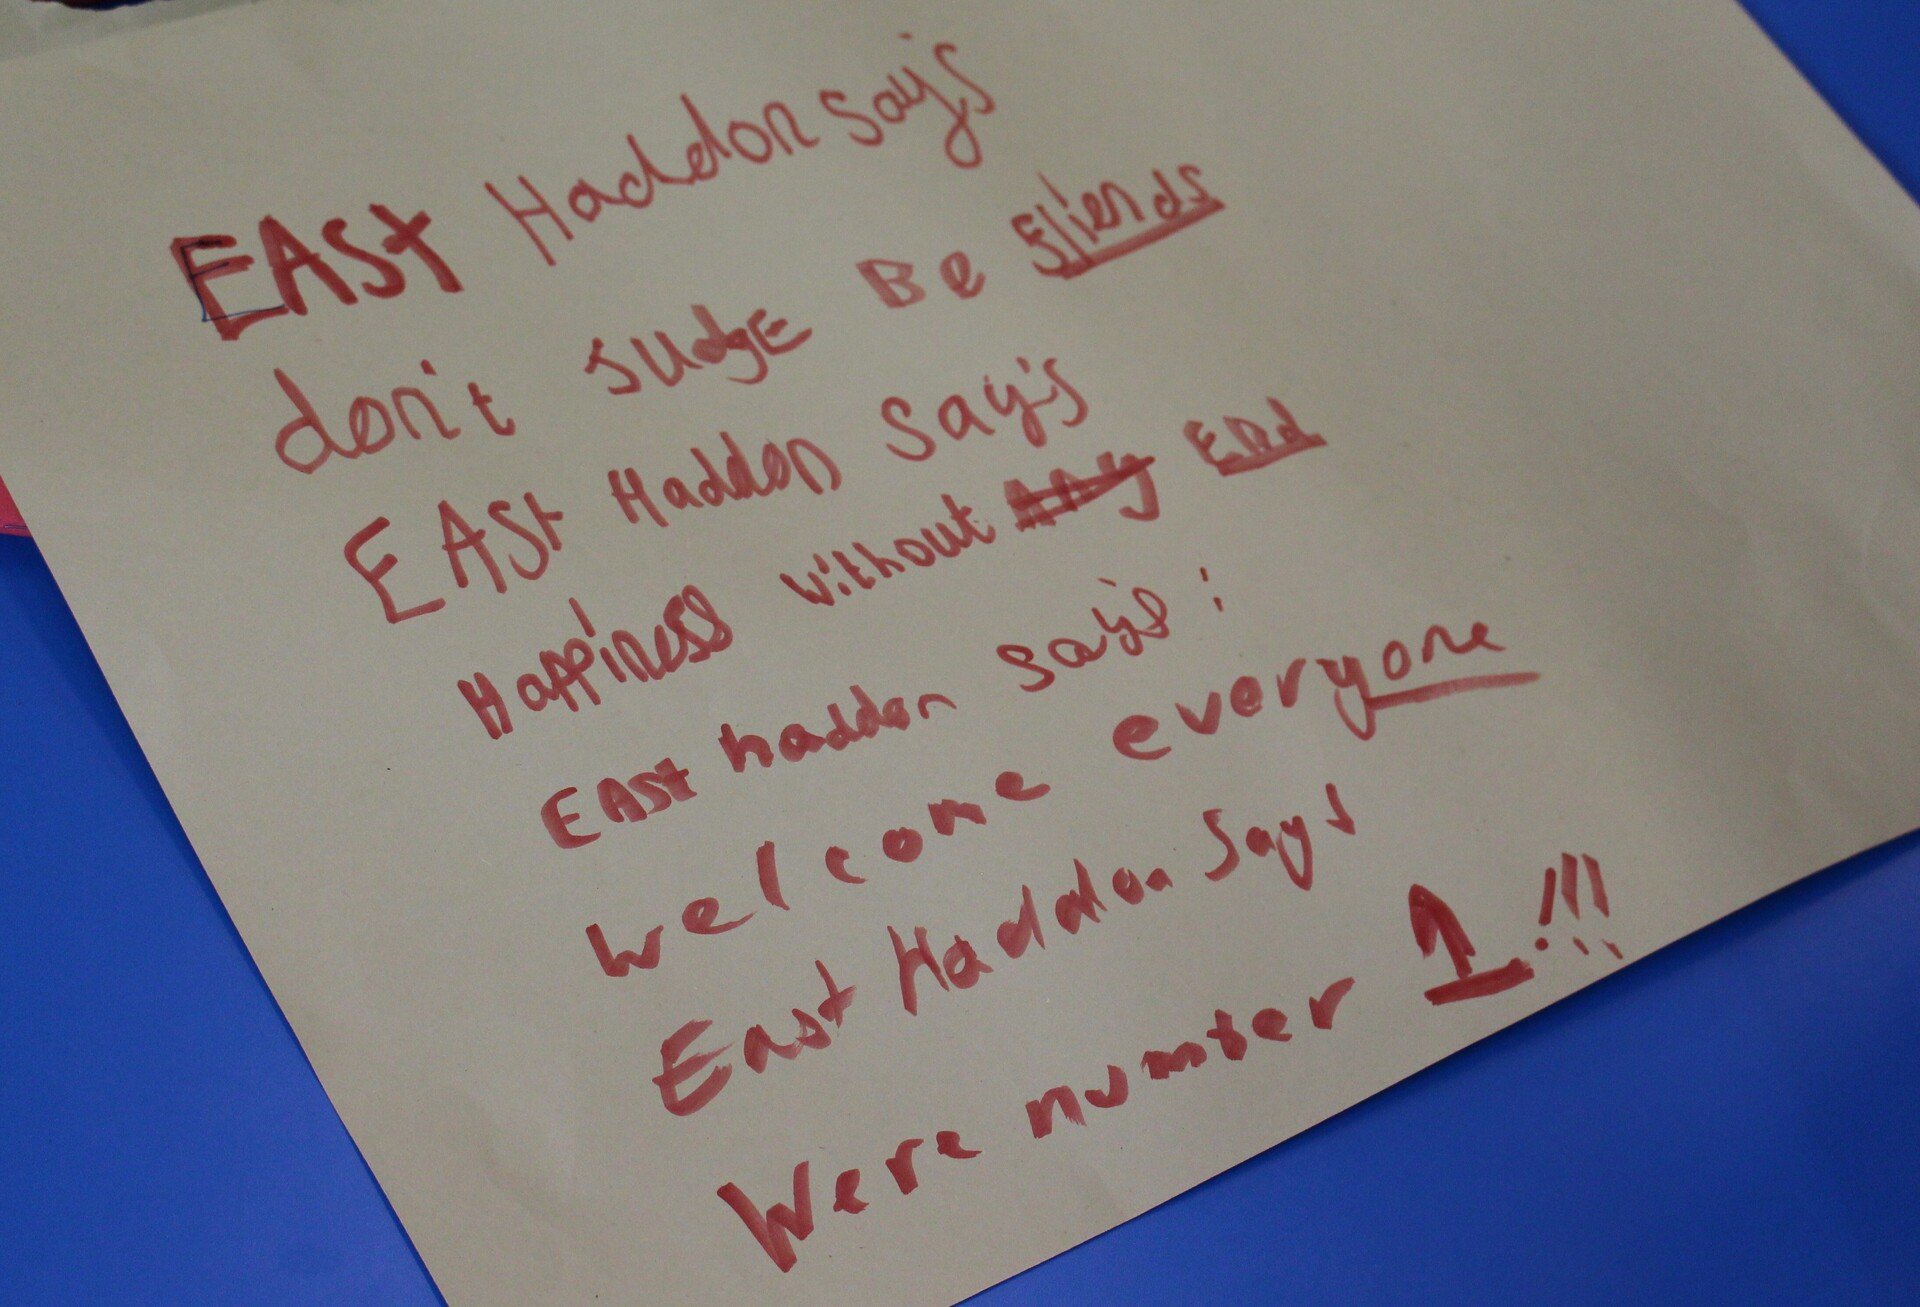 EASt Haddon say's
don't JUdgE Be friends
EASt Haddon say's
Happiness without any End
EASt haddon say's:
welcome everyone
East Haddon Says
Were number 1!!!